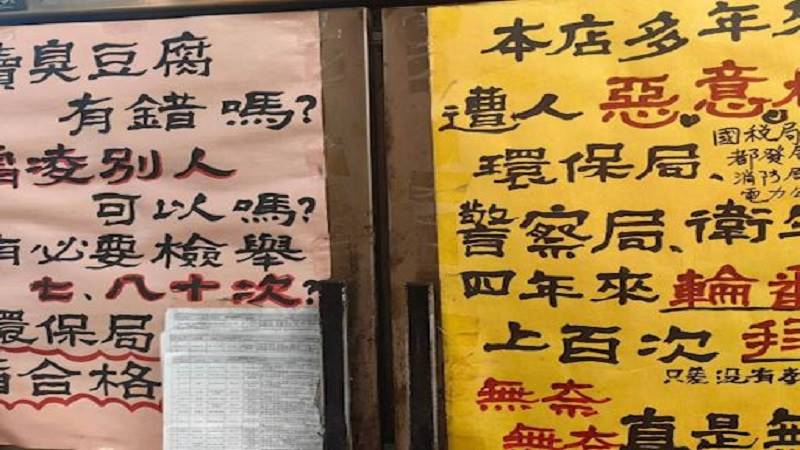 賣臭豆腐
有錯嗎?
凌別人
可以嗎?
有必要檢舉
七、八十次?
環保局
合格
本店多年
遭人惡意
環保局、
國稅局
都發局
消防局
電力公
警察局、衛生
四年來輪番
上百次拜
只差沒有
無奈
無奈真是無